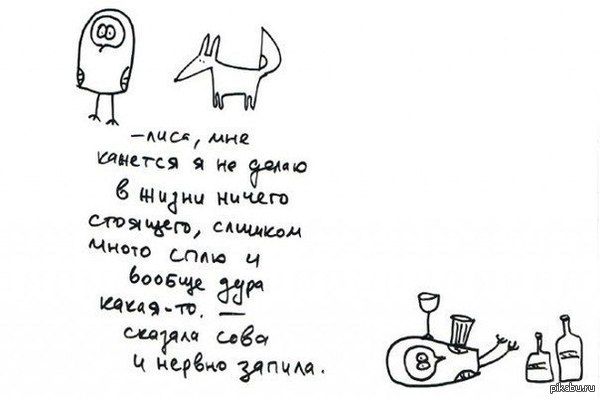 -лиса, мне
кажется я не делаю
в жизни ничего
стоящего, слишком
много сплю и
вообще дура
какая-то. —
сказала сова
и нервно запила.
pikabu.ru